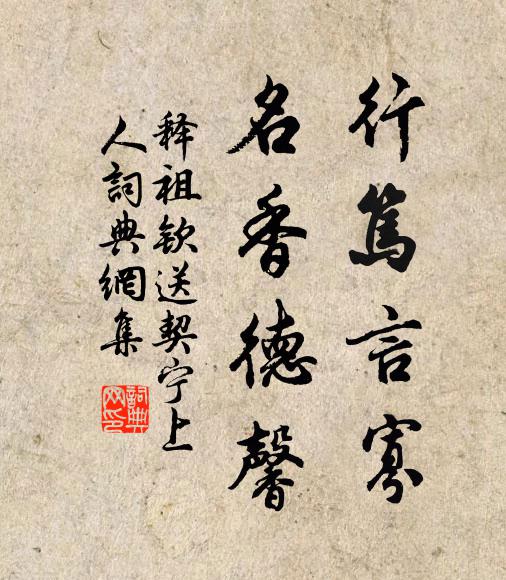 行笃言寡
名香德馨
释祖钦送契宁上
人詞典網集
詞典
网印